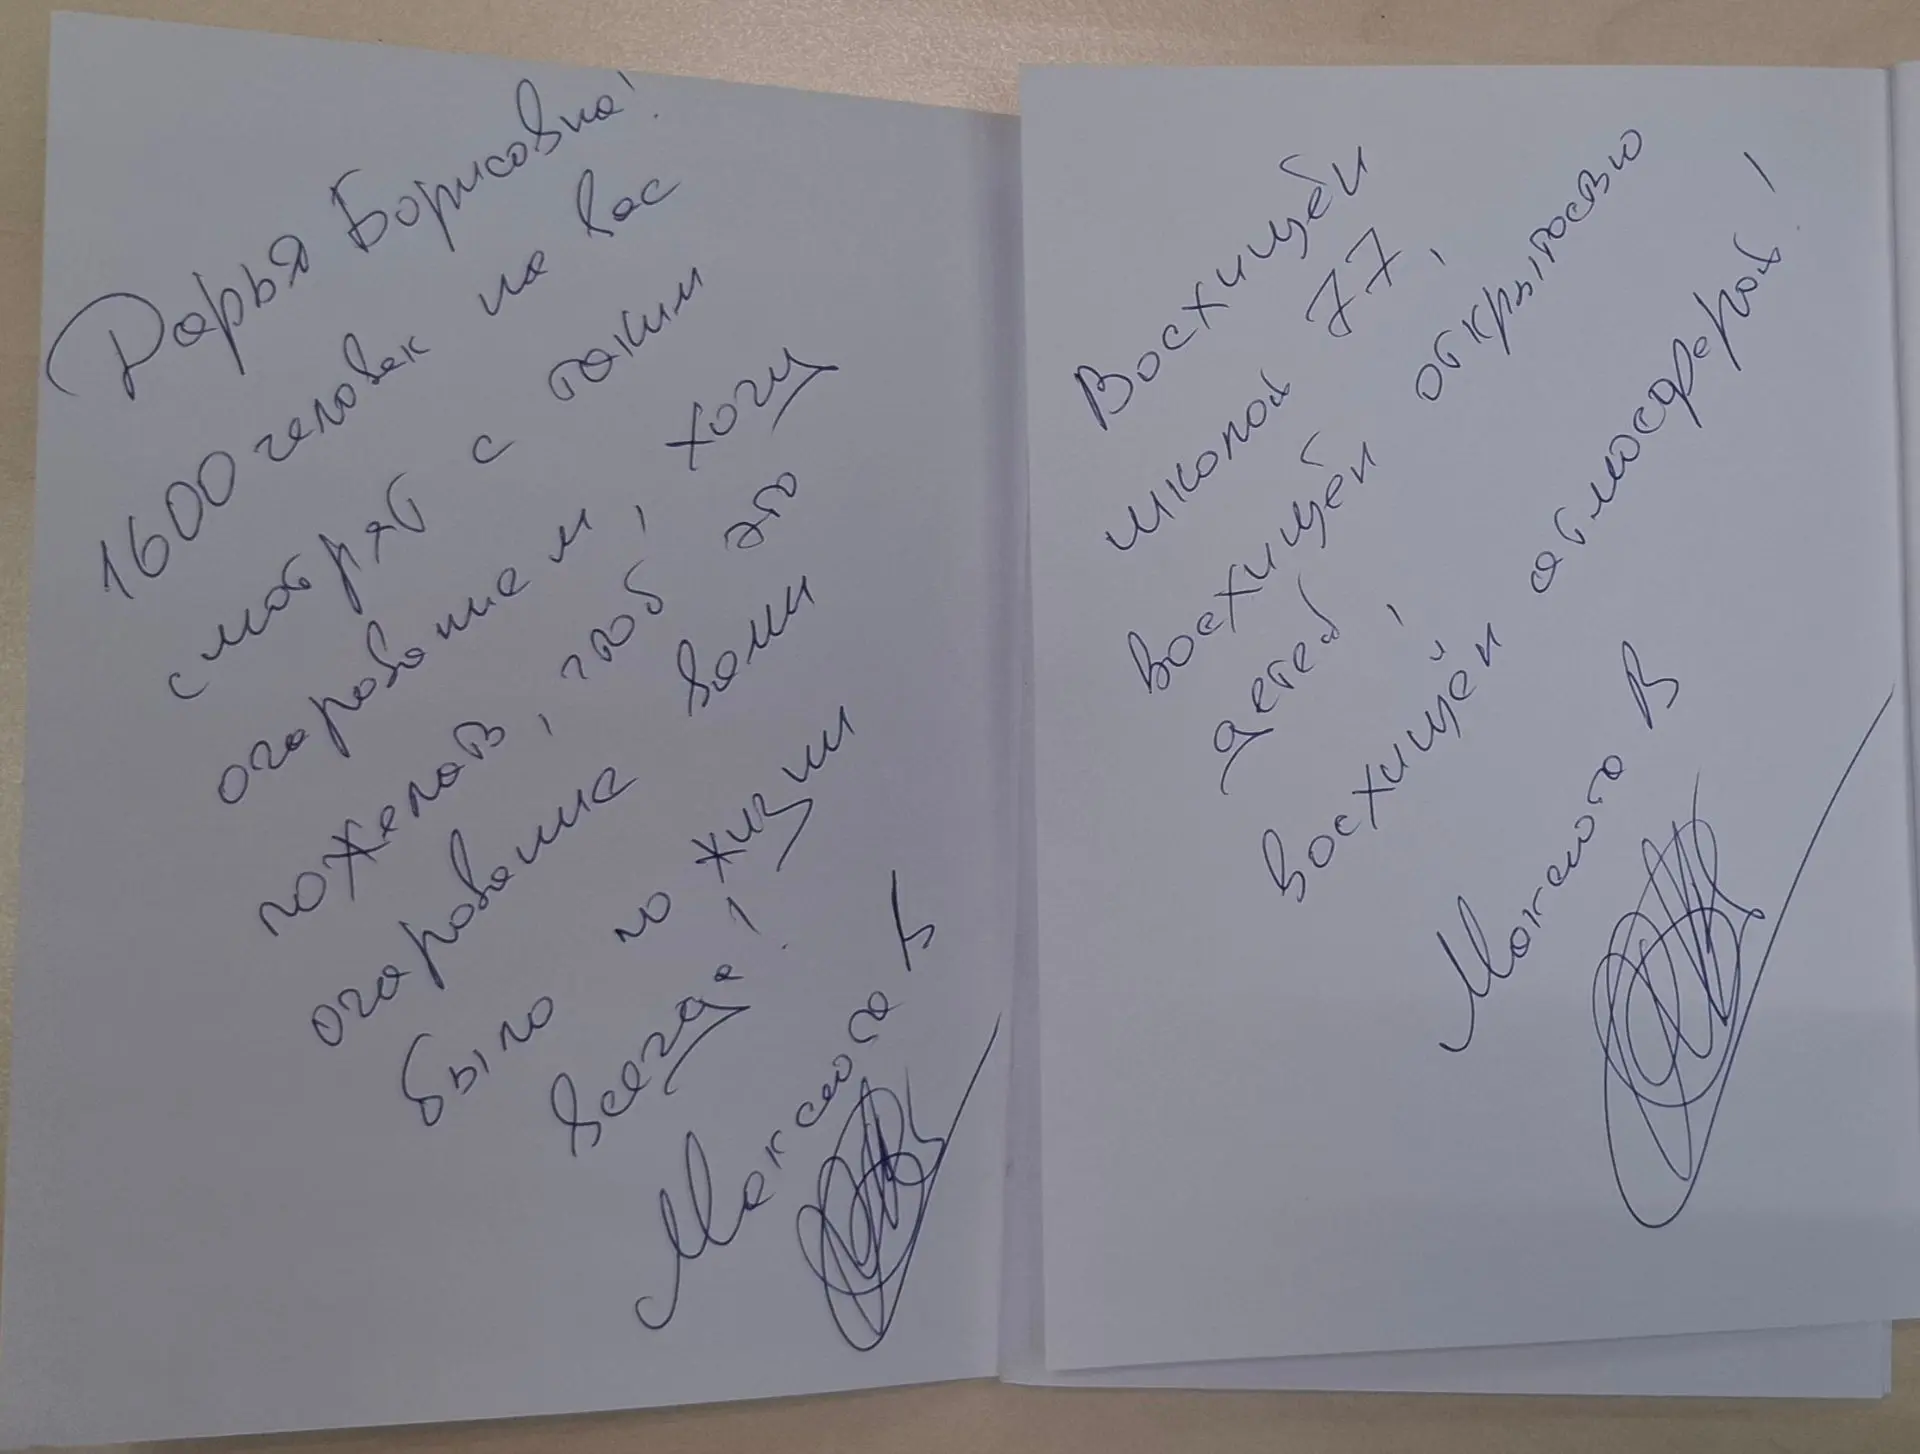 Дарья Борисовна!
1600 человек на вас
смотрят с таким
очарованием, хочу
пожелать, чтоб это
очарование вами
было по жизни
всегда!
Максюта В
Восхищён
школой 77,
восхищён открытостью
детей,
восхищён атмосферой!
Максюта В